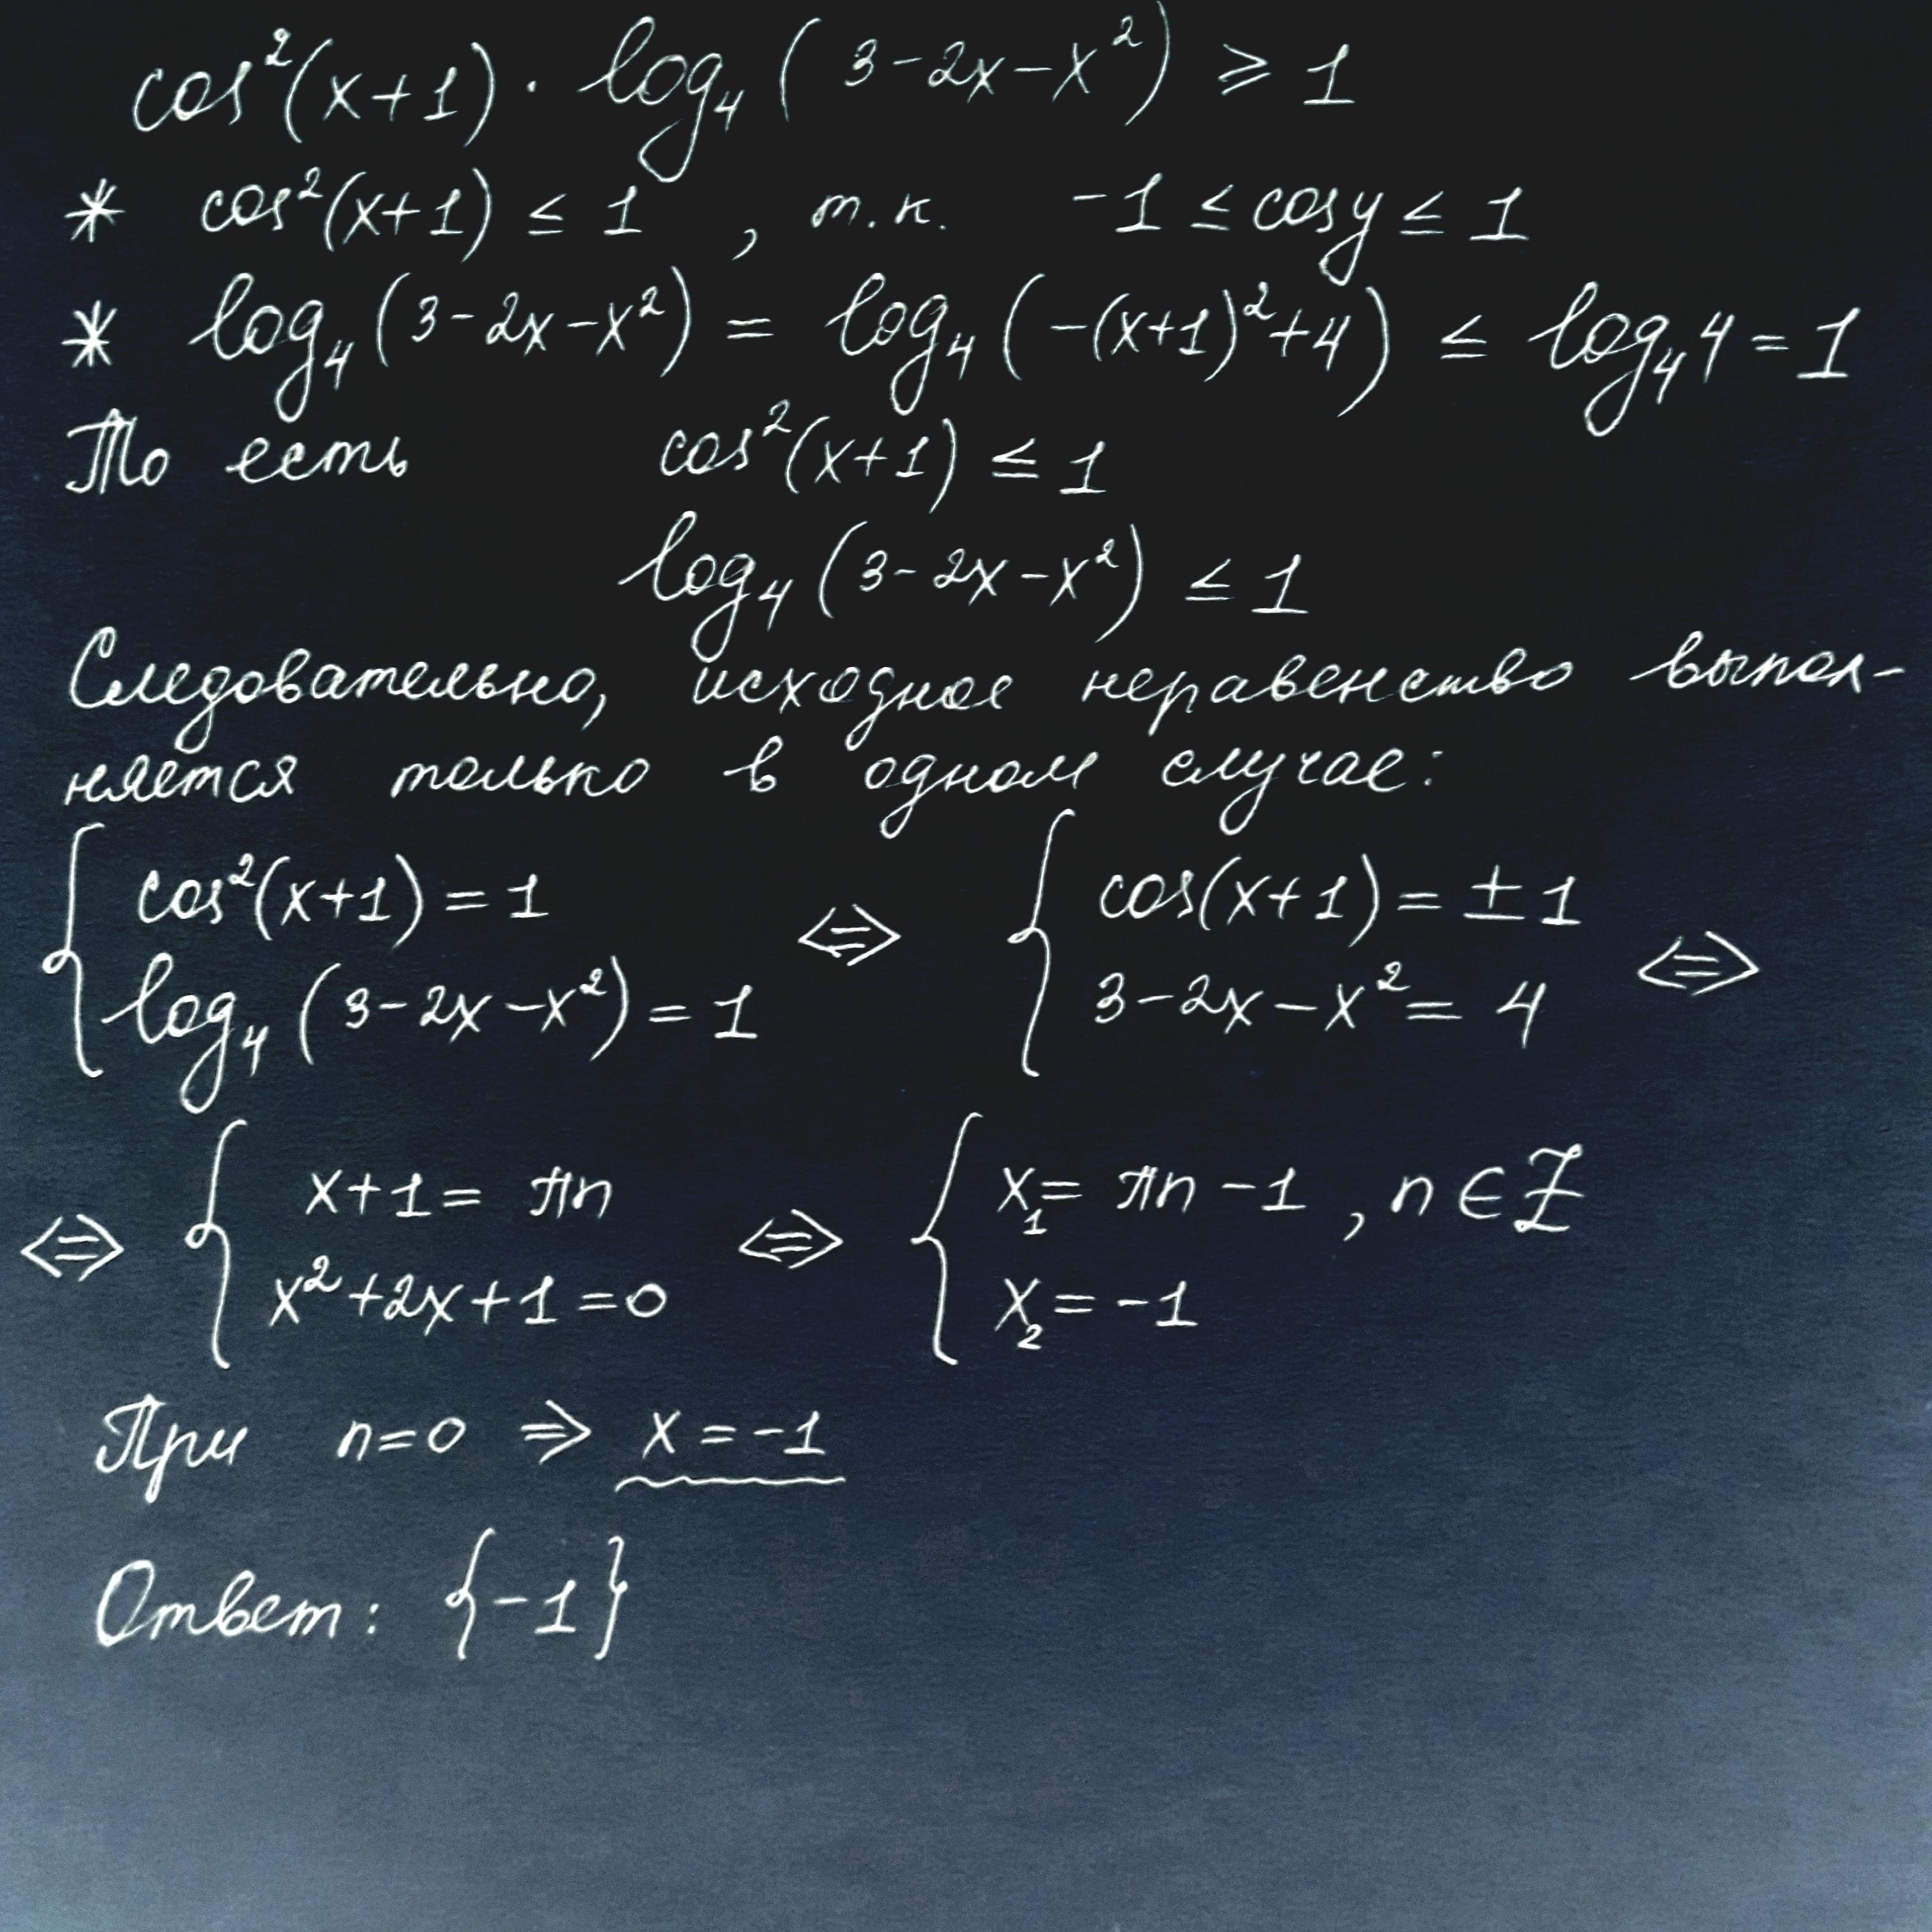 cos²(x+1) · log₄(3-2x-x²) ≥ 1
* cos²(x+1) ≤ 1 , т.к. -1 ≤ cosy ≤ 1
* log₄(3-2x-x²) = log₄(-(x+1)²+4) ≤ log₄4 = 1
То есть cos²(x+1) ≤ 1
log₄(3-2x-x²) ≤ 1
Следовательно, исходное неравенство выпол-
няется только в одном случае:
{ cos²(x+1) = 1 <=> { cos(x+1) = ±1 <=>
log₄(3-2x-x²) = 1 3-2x-x² = 4
<=> { x+1 = πn <=> { x₁ = πn-1 , n∈Z
x²+2x+1=0 x₂ = -1
При n=0 => x = -1
Ответ: {-1}